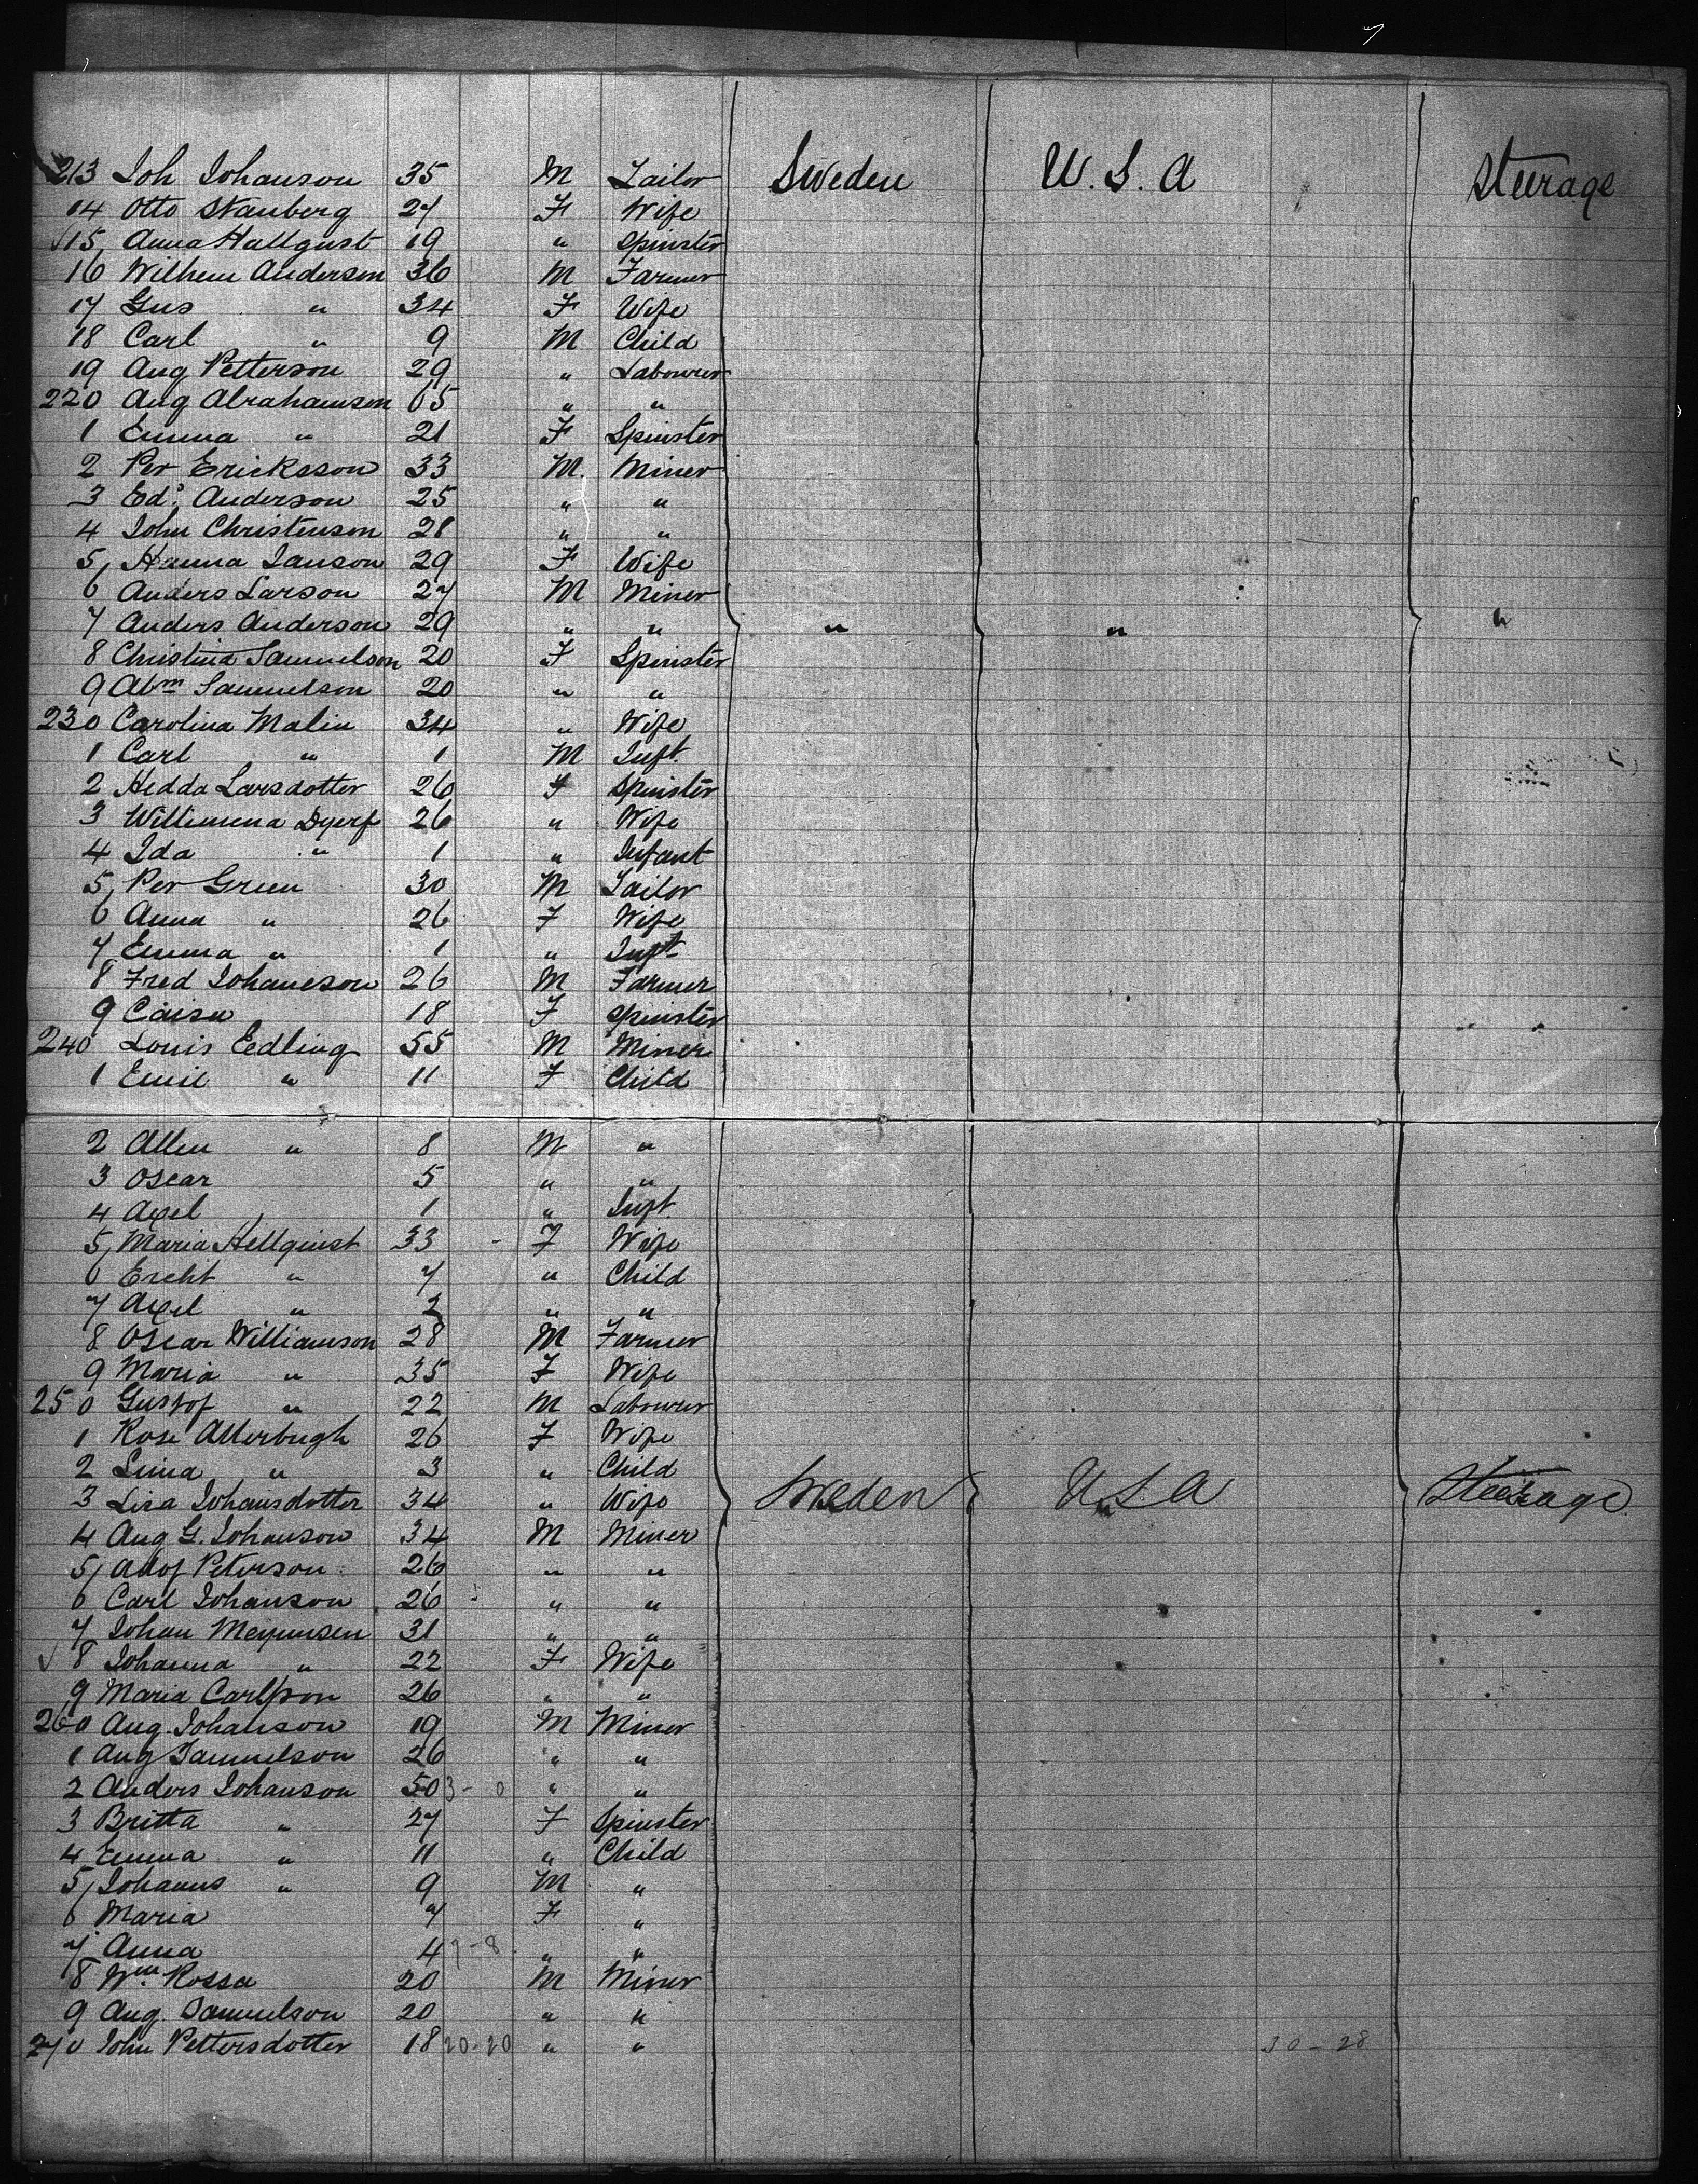 213 Joh Johanson 35 M Tailor Sweden U. S. A steerage
14 Otto Stanberg 27 F Wife
15, Anna Hallqust 19 " Spinster
16 Wilhem Anderson 36 M Farmer
17 Gus " 34 F Wife
18 Carl " 9 M Child
19 Aug Petterson 29 " Labourer
220 Aug Abrahamson 65 " "
1 Emma " 21 F Spinster
2 Per Ericksson 33 M. Miner
3 Edd Anderson 25 " "
4 John Christenson 28 " "
5, Hanna Janson 29 F Wife
6 Anders Larson 27 M Miner
7 Anders Anderson 29 " " " " "
8 Christina Samuelson 20 F Spinster
9 Abm Samuelson 20 " "
230 Carolina Malin 34 " Wife
1 Carl " 1 M Inft.
2 Hedda Larsdotter 26 F Spinster
3 Willimena Dyerf 26 " Wife
4 Ida " 1 " Infant
5, Per Green 30 M Tailor
6 Anna " 26 F Wife
7 Emma " 1 " Inft
8 Fred Johaneson 26 M Farmer
9 Caisa 18 F Spinster
240 Louis Eedling 55 M Miner
1 Emil " 11 F Child
2 Allen " 8 M "
3 Oscar 5 " "
4 Axel 1 " Inft
5, Maria Hellquist 33 F Wife
6 " 7 " Child
7 Axel " 2 " "
8 Oscar Williamson 28 M Farmer
9 Maria " 35 F Wife
250 Gustof " 22 M Labourer
1 Rose Allerbugh 26 F Wife
2 Lina " 3 " Child
3 Lisa Johansdotter 34 " Wife Sweden U S A Steerage
4 Aug G. Johanson 34 M Miner
5, Adof Peterson 26 " "
6 Carl Johanson 26 " "
7 Johan 31 " "
8 Johanna " 22 F Wife
9 Maria Carlson 26 " "
260 Aug. Johanson 19 M Miner
1 Aug Samuelson 26 " "
2 Anders Johanson 50 3 - 0 " "
3 Britta " 27 F Spinster
4 Emma " 11 " Child
5, Johanns " 9 M "
6 Maria 7 F "
7 Anna 4 7-8 " "
8 Wm. Rossa 20 M Miner
9 Aug. Samuelson 20 " "
270 John Pettersdotter 18 20-20 " " 30 - 28